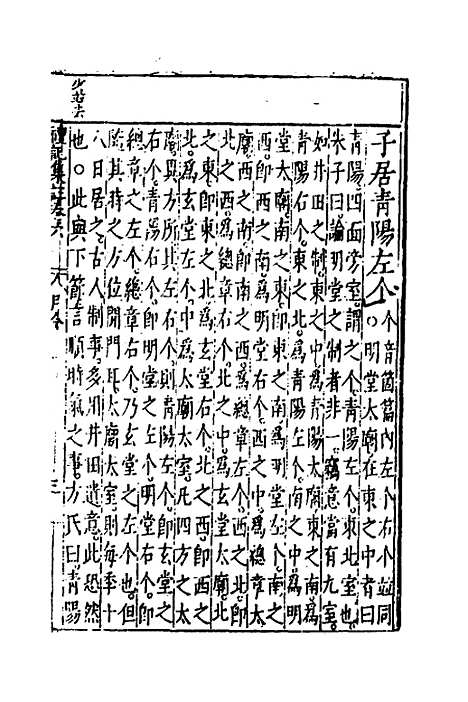 子居青陽左个个音箇篇内左个右个並同○明堂太廟在東之中者曰
青陽四面旁室謂之个青陽左个東北室也
朱子曰論明堂之制者非一竊意當有九室
如井田之制東之中爲青陽太廟東之南爲
青陽右个東之北爲青陽左个南之中爲明
堂太廟南之東卽東之南爲明堂左个南之
西卽西之南爲明堂右个西之中爲總章太
廟西之南卽南之西爲總章左个西之北卽
北之西爲總章右个北之中爲玄堂太廟北
之東卽東之北爲玄堂右个北之西卽西之
北爲玄堂左个中爲太廟太室凡四方之太
廟異方所其左右个則青陽左个卽玄堂之
右个青陽右个卽明堂之左个明堂右个卽
總章之左个總章右个乃玄堂之左个也但
隨其時之方位開門耳太廟太室則每季十
八日居之古人制事多用井田遺意此恐然
也○此與下節言順時氣之事方氏曰青陽
禮記集註卷六 月令 三